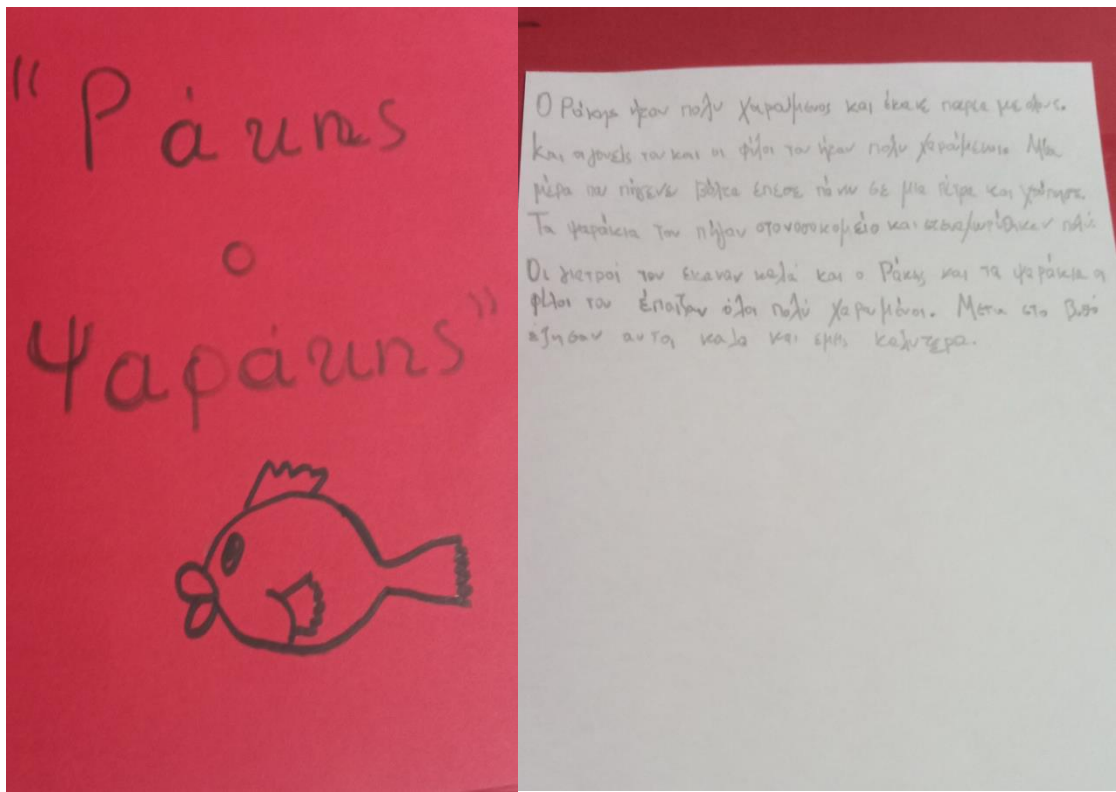 "Ράκης
ο
Ψαράκης"
Ο Ράκης ήταν πολυ χαρουμενος και έκανε παρεα με
και οι γονείς του και οι φίλοι του ήταν πολυ χαρούμενοι. Μια
μέρα που πήγενε βόλτα έπεσε πάνω σε μια πέτρα και χτύπησε.
Τα ψαράκια του πήγαν στο νοσοκομείο και στεναχωρέθηκαν πολύ.
Οι γιατροί τον έκαναν καλά και ο Ράκης και τα ψαράκια οι
φίλοι του έπαιζαν όλοι πολύ χαρουμένοι. Μετα στο βυθό
έζησαν αυτοι καλα και εμης καλυτερα.